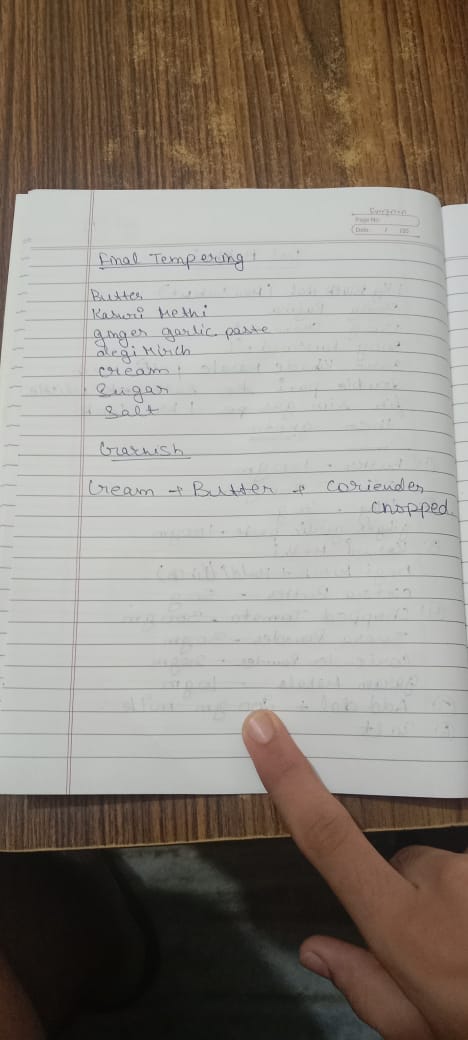 Evergreen
Page No.
Date / /20
Final Tempering
Butter
Kasuri Methi
ginger garlic paste
degi Mirch
cream
Sugar
Salt
Garnish
Cream + Butter + coriender
chopped.